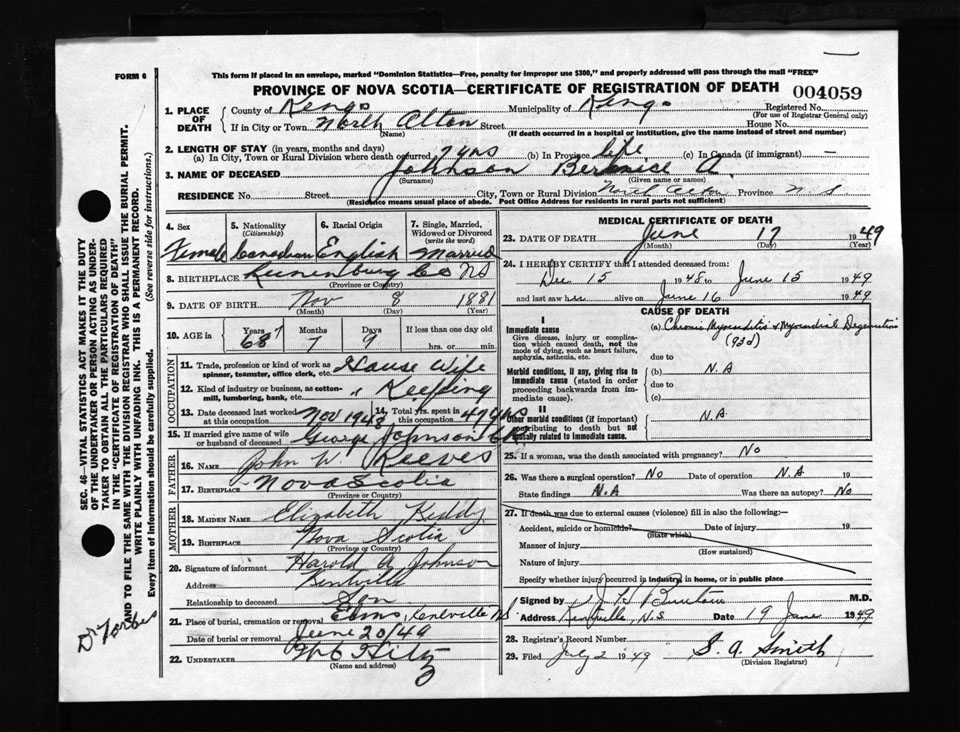 FORM 6
This form if placed in an envelope, marked "Dominion Statistics—Free, penalty for improper use $300," and properly addressed will pass through the mail "FREE"
PROVINCE OF NOVA SCOTIA—CERTIFICATE OF REGISTRATION OF DEATH 004059
1. PLACE OF DEATH County of Kings Municipality of Kings Registered No.
(For use of Registrar General only)
If in City or Town North Alton Street House No.
(Name) (If death occurred in a hospital or institution, give the name instead of street and number)
2. LENGTH OF STAY (in years, months and days)
(a) In City, Town or Rural Division where death occurred 7 yrs (b) In Province life (c) In Canada (if immigrant) —
3. NAME OF DECEASED Johnson Bernice A.
(Surname) (Given name or names)
RESIDENCE No. Street City, Town or Rural Division North Alton Province N S
(Residence means usual place of abode. Post Office Address for residents in rural parts not sufficient)
4. Sex 5. Nationality (Citizenship) 6. Racial Origin 7. Single, Married, Widowed or Divorced (write the word)
Female Canadian English Married
8. BIRTHPLACE Lunenburg Co NS
(Province or Country)
9. DATE OF BIRTH Nov 8 1881
(Month) (Day) (Year)
10. AGE in Years Months Days If less than one day old
68 7 9 hrs. or min.
OCCUPATION
11. Trade, profession or kind of work as spinner, teamster, office clerk, etc. House Wife
12. Kind of industry or business, as cotton-mill, lumbering, bank, etc. " Keeping
13. Date deceased last worked at this occupation Nov 1948 14. Total yrs. spent in this occupation 47 yrs
15. If married give name of wife or husband of deceased George Johnson
FATHER
16. NAME John W. Reeves
17. BIRTHPLACE Nova Scotia
(Province or Country)
MOTHER
18. MAIDEN NAME Elizabeth Keddy
19. BIRTHPLACE Nova Scotia
(Province or Country)
20. Signature of informant Harold A Johnson
Address Kentville
Relationship to deceased Son
21. Place of burial, cremation or removal Elms, Kentville NS
Date of burial or removal June 20/49
22. UNDERTAKER Hiltz
(Name and address)
MEDICAL CERTIFICATE OF DEATH
23. DATE OF DEATH June 17 1949
(Month) (Day) (Year)
24. I HEREBY CERTIFY that I attended deceased from:
Dec 15 1948 to June 15 1949
and last saw her alive on June 16 1949
CAUSE OF DEATH
I
Immediate cause
Give disease, injury or complication which caused death, not the mode of dying, such as heart failure, asphyxia, asthenia, etc.
(a) Chronic Myocarditis & Myocardial Degeneration
(93d)
due to
Morbid conditions, if any, giving rise to immediate cause (stated in order proceeding backwards from immediate cause).
(b) N.A
due to
(c)
II
Other morbid conditions (if important) contributing to death but not causally related to immediate cause. N.A.
25. If a woman, was the death associated with pregnancy? No
26. Was there a surgical operation? No Date of operation N.A 19
State findings N.A Was there an autopsy? No
27. If death was due to external causes (violence) fill in also the following:—
Accident, suicide or homicide? Date of injury 19
(State which)
Manner of injury
(How sustained)
Nature of injury
Specify whether injury occurred in industry, in home, or in public place
Signed by M.D.
Address Kentville, N.S Date 19 June 1949
28. Registrar's Record Number
29. Filed July 2 1949 S. A. Smith
(Division Registrar)
SEC. 46—VITAL STATISTICS ACT MAKES IT THE DUTY
OF THE UNDERTAKER OR PERSON ACTING AS UNDER-
TAKER TO OBTAIN ALL THE PARTICULARS REQUIRED
IN THE "CERTIFICATE OF REGISTRATION OF DEATH"
AND TO FILE THE SAME WITH THE DIVISION REGISTRAR WHO SHALL ISSUE THE BURIAL PERMIT.
WRITE PLAINLY WITH UNFADING INK. THIS IS A PERMANENT RECORD.
Every item of Information should be carefully supplied. (See reverse side for instructions.)
Dr Forbes